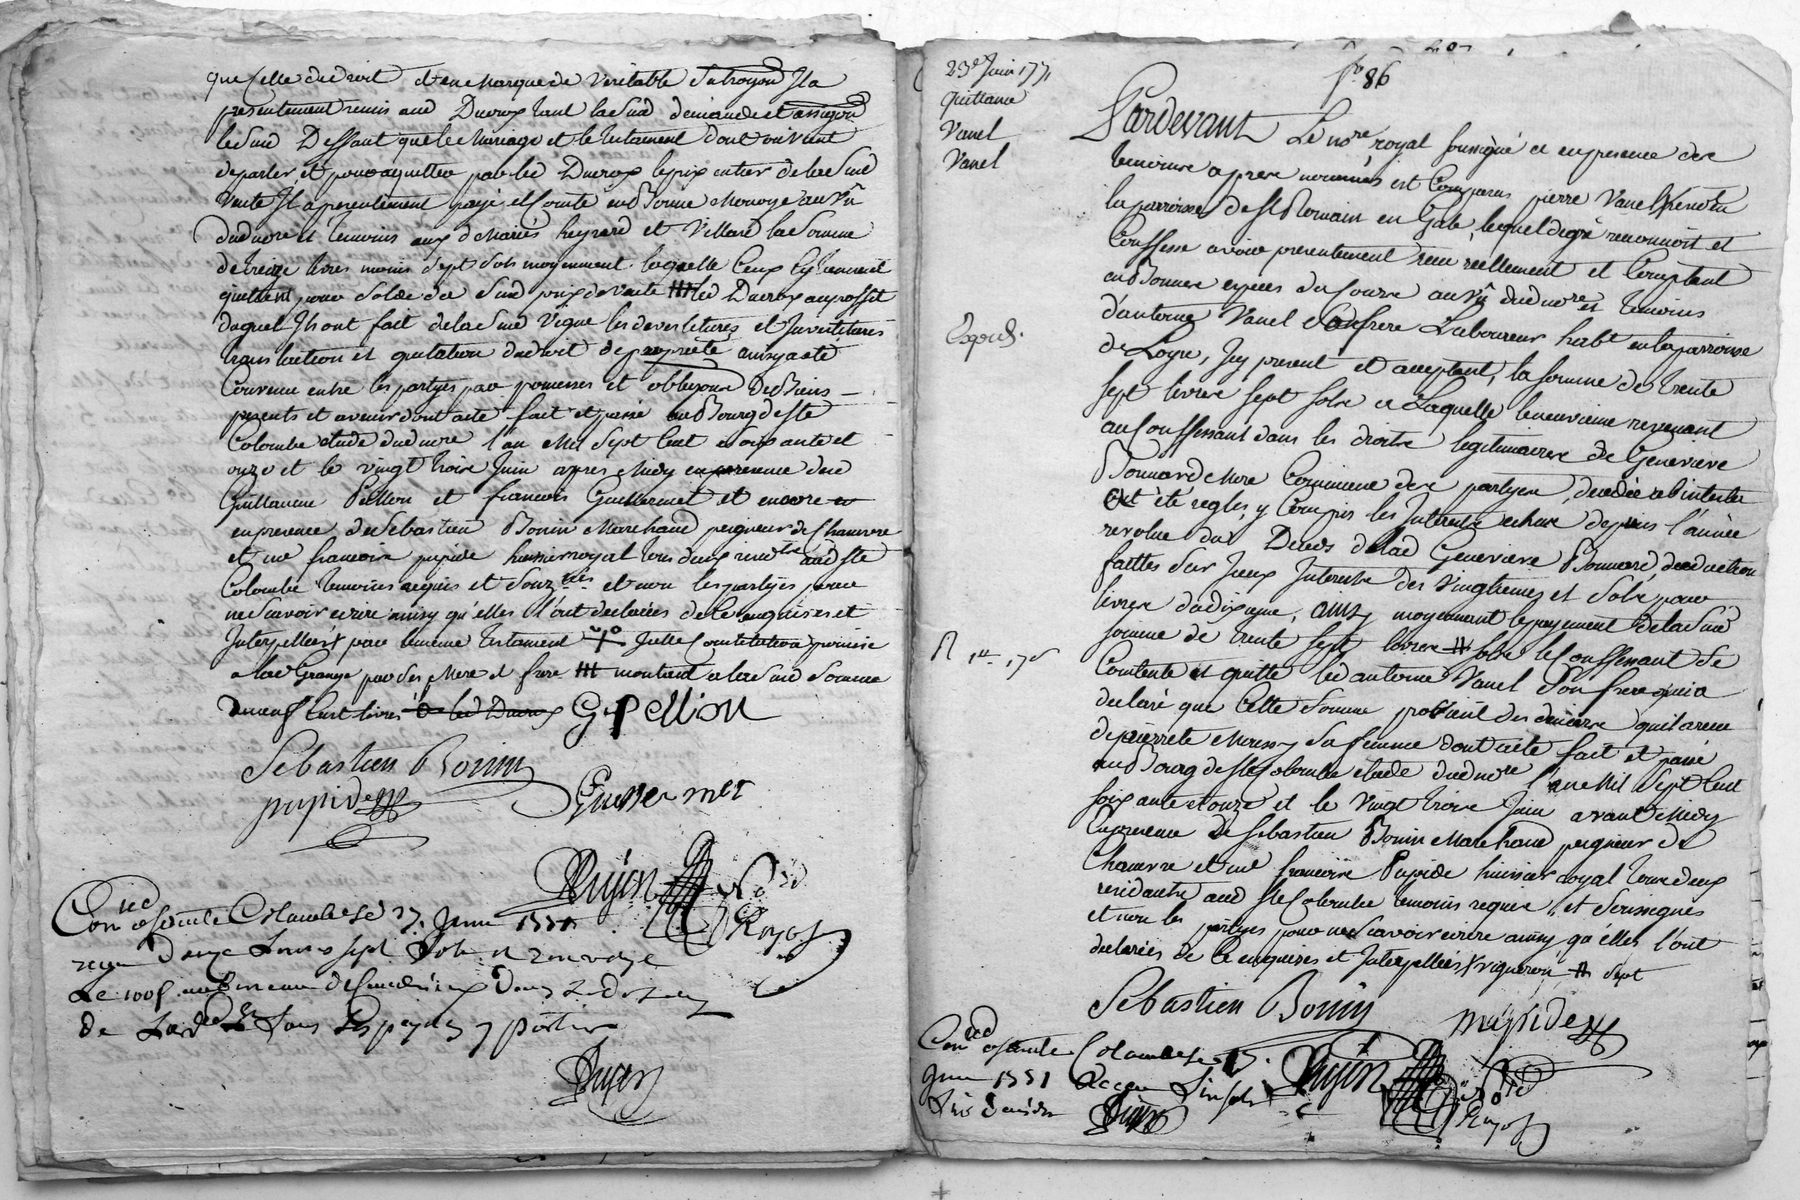 que celle du droit d'en marque de veritable
presentement remis aud Ducros tant lad
led Deffant que le Mariage et le testament dont on vient
de parler et pour aquitter par led Ducros le prix entier de lad
vente Il a presentement payé et Comté en Bonne Monoye au vû
dud nore et temoins aux d Mariés heyrard et Villard la Somme
de treize livres moins Sept Sols moyennant laquelle Ceux Cy tiennent
quittent pour Solde du prix de vente led Ducros au proffit
duquel Ils ont fait de lad vigne les devestitures et Investitures
translation et du droit de proprieté ainsy a été
Convenu entre les partyes par promesses et obligaon De Biens
presents et avenir dont acte fait et passé au Bourg de Ste
Colombe etude dud nore l'an Mil Sept Cent Soixante et
onze et le vingt trois Juin apres Midy en presence de
Guillaume Pellion et francois Guillermet et encore
en presence de Sebastien Bonin Marchand peigneur de Chanvre
et me francois pupide huissier royal tous deux aud Ste
Colombe temoins requis et et non les partyes pour
ne Scavoir ecrire ainsy qu'elles l'ont declarées de Ce enquises et
Interpellées par meme testament Constitution
a la Grange par Ses Mere et frere montant a lad Somme
de neuf Cent livres Gpellion
Sebastien Bonin
pupide Guillermet
Dujon
Royal
Conled a Sainte Colombe Le 27 Juin 1771
reçu Douze Livres sept Sols
Le 100e au Bureau de
de
Dujon
23e Juin 1771
Quittance
Vanel
Vanel
Expedi.
fo 86
Pardevant Le nore royal soussigné et en presence des
temoins apres nommés est Comparu pierre Vanel
la parroisse de St Romain en Gale, lequel de gré reconnoit et
Confesse avoir presentement receu reellement et Comptant
en Bonnes especes du Cours au vû dud nore et temoins
d'antoine Vanel son frere Laboureur habt en la parroisse
de Loyre, Icy present et acceptant, la somme de trente
sept livres sept sols a Laquelle
au Conffessant dans les droits legitimaires de Genevieve
Bonnard Mere Commune des partyes, decedée ab intestat
ont été reglés, y Compris les Interests echus depuis l'année
revolue du Deces de lad Genevieve Bonnard, deduction
faittes Sur Iceux Interests des vingtiemes et Sols pour
livres du dixieme, ainsy moyennant le payement de lad
somme de trente sept livres sols le Conffessant Se
Contente et quitte led antoine Vanel Son frere
declaré que Cette Somme provient des deniers qu'il a receu
de pierrete Moussy Sa femme dont acte fait et passé
au Bourg de Ste Colombe etude dud nore l'an Mil Sept Cent
soixante et onze et le vingt trois Juin avant Midy
En presence De Sebastien Bonin Marchand peigneur de
Chanvre et me francois Pupide huissier royal tous deux
residants aud Ste Colombe temoins requis et soussignés
et non les partyes pour ne Scavoir ecrire ainsy qu'elles l'ont
declarées de Ce enquises et Interpellées vigneron sept
Sebastien Bonin
pupide
Conled a Sainte Colombe Le 27
Juin 1771 Reçu
Six deniers
Dujon
Dujon
Royal